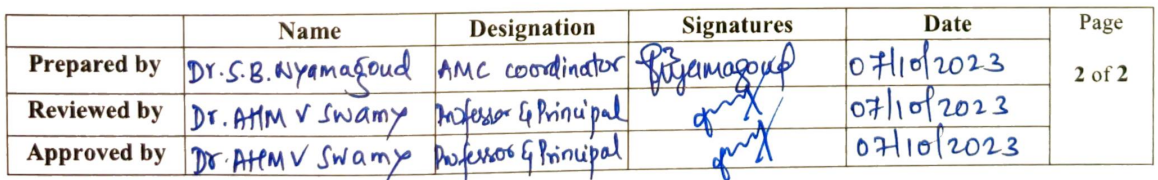 Name Designation Signatures Date Page
Prepared by Dr. S.B. Nyamagoud AMC coordinator 07/10/2023 2 of 2
Reviewed by Dr. AHM V Swamy Professor & Principal 07/10/2023
Approved by Dr. AHM V Swamy Professor & Principal 07/10/2023